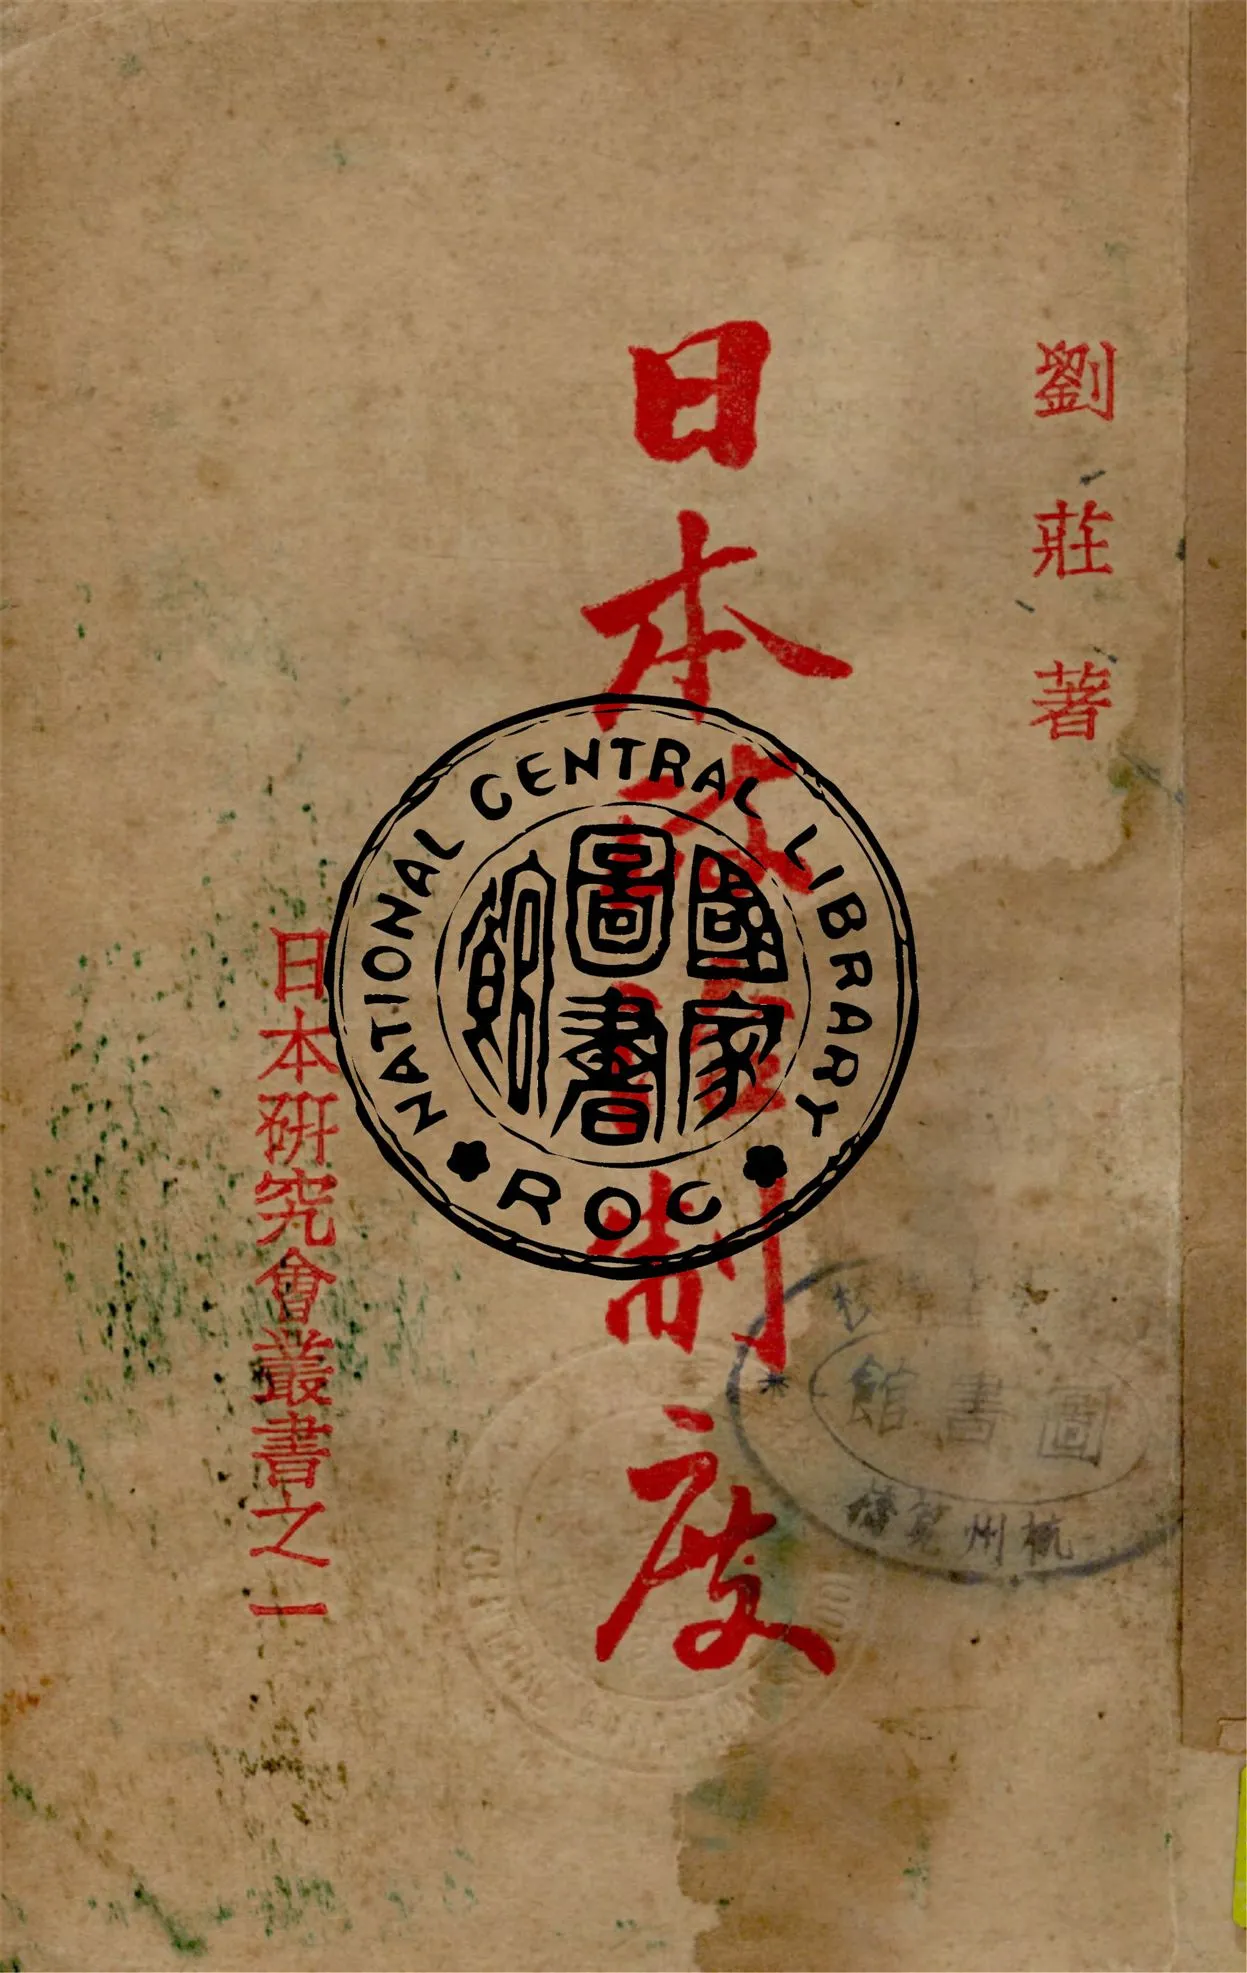 劉莊著
日本
制度
日本研究會叢書之一
NATIONAL CENTRAL LIBRARY
國家
圖書
館
ROC
圖書館
杭州筧橋